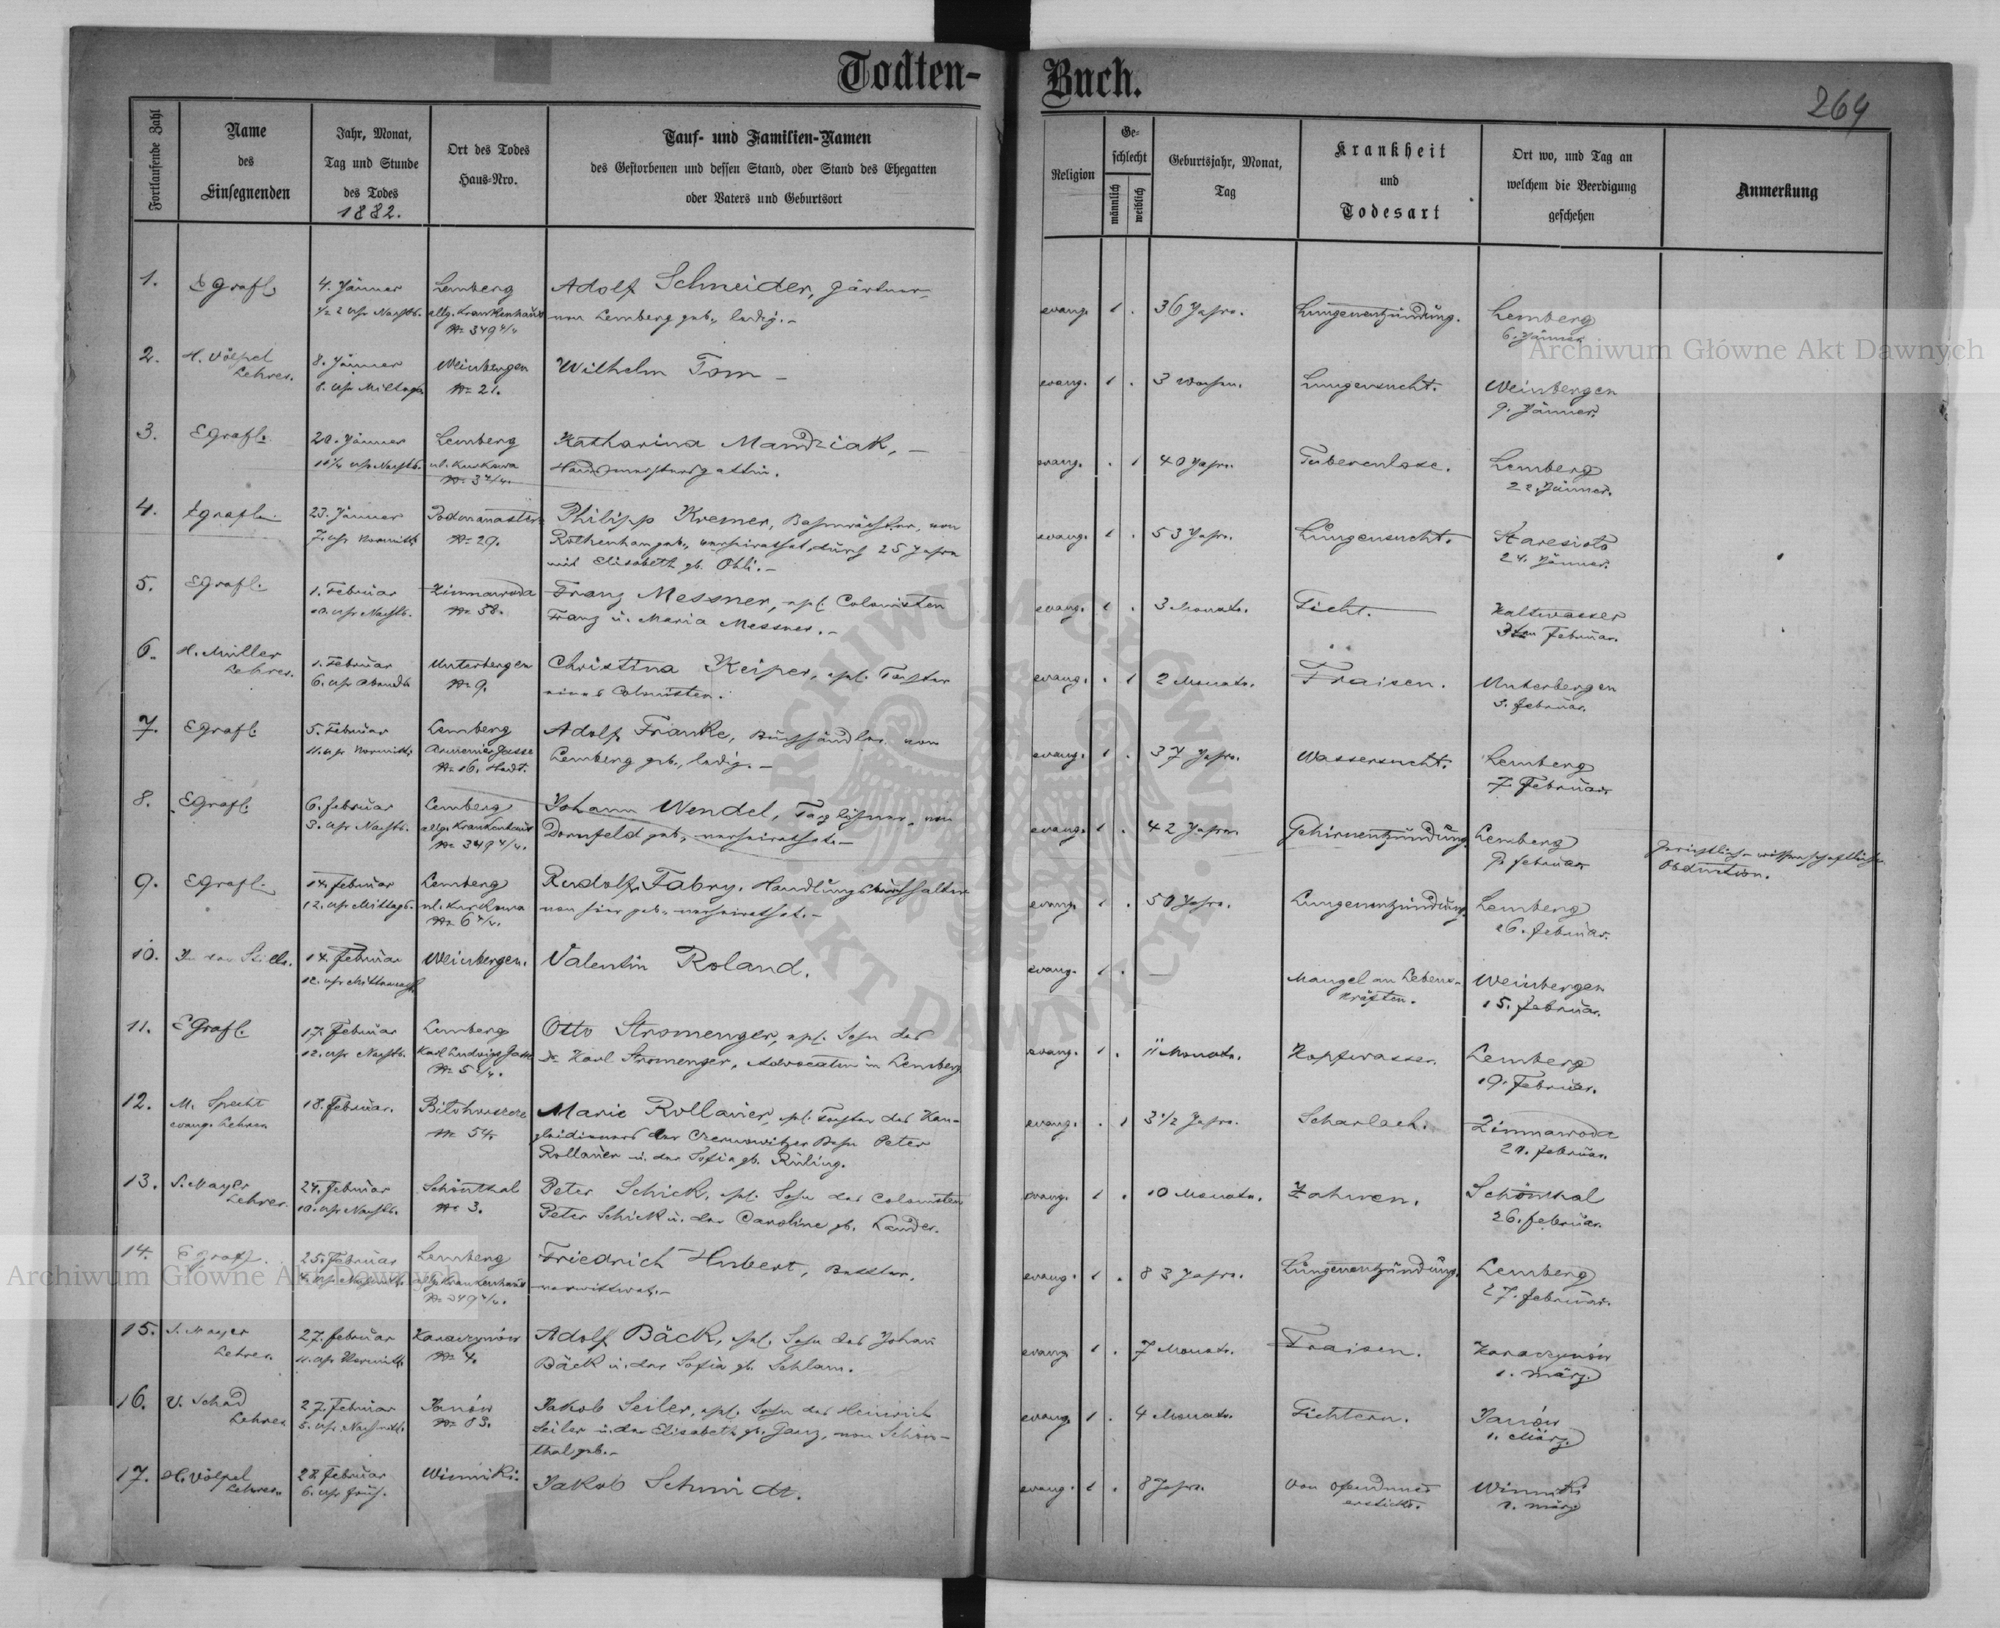 Todten-Buch.
264
Fortlaufende Zahl
Name
des
Einsegnenden
Jahr, Monat,
Tag und Stunde
des Todes
1882.
Ort des Todes
Haus-Nro.
Tauf- und Familien-Namen
des Gestorbenen und dessen Stand, oder Stand des Ehegatten
oder Vaters und Geburtsort
Religion
Ge-
schlecht
männlich
weiblich
Geburtsjahr, Monat,
Tag
Krankheit
und
Todesart
Ort wo, und Tag an
welchem die Beerdigung
geschehen
Anmerkung
1.
4. Jänner
1/2 2 Uhr Nachts.
Lemberg
allg. Krankenhaus
Nr 349 4/4
Adolf Schneider, Gärtner,
von Lemberg geb., ledig.-
evang. 1 .
36 Jahre.
Lungenentzündung.
Lemberg
6. Jänner
2.
H. Völpel
Lehrer.
8. Jänner
Uhr Mittags
Weinbergen
Nr 21.
Wilhelm Tom -
evang. 1 .
3 Wochen.
Lungensucht.
Weinbergen
9. Jänner.
3.
20. Jänner
Uhr Nachts.
Lemberg
ul. Kurkowa
Nr 3 4/4.
Katharina Mandziak, -
Hausmeistersgattin.
evang. . 1
40 Jahre.
Tuberculose.
Lemberg
22. Jänner.
4.
23. Jänner
7. Uhr Vormitt.
Nr 29.
Philipp Kremer, Bahnwächter, von
Rothenhan geb., verheirathet durch 25 Jahre
mit Elisabeth gb. Ohli.-
evang. 1 .
53 Jahre.
Lungensucht.
Staresioło
24. Jänner.
5.
1. Februar
10. Uhr Nachts.
Zimnawoda
Nr 58.
Franz Messner, ehl. Colonisten
Franz u. Maria Messner.-
evang. 1 .
3 Monate.
Kaltwasser
3ten Februar.
6.
H. Müller
Lehrer.
1. Februar
6. Uhr Abends
Unterbergen
Nr 9.
Christina Keiper, ehl. Tochter
eines Colonisten.
evang. . 1
2 Monate.
Fraisen.
Unterbergen
3. Februar.
7.
5. Februar
11. Uhr Vormitt.
Lemberg
Armenier Gasse
Nr 16. Stadt.
Adolf Franke, Buchhändler von
Lemberg geb., ledig.-
evang. 1 .
37 Jahre.
Wassersucht.
Lemberg
7. Februar
8.
6. Februar
3. Uhr Nachts.
Lemberg
allg. Krankenhaus
Nr 349 4/4.
Johann Wendel, Taglöhner, von
Dornfeld geb., verheirathet.-
evang. 1 .
42 Jahre.
Gehirnentzündung
Lemberg
Februar
Gerichtlich-wissenschaftliche
Obduction.
9.
14. Februar
12. Uhr Mittags.
Lemberg
ul. Kurkowa
Nr 6 4/4.
Rudolf Fabry, Handlungsbuchhalter
von hier geb., verheirathet.-
evang. 1 .
50 Jahre.
Lungenentzündung
Lemberg
16. Februar.
10.
In der Stille.
14. Februar
12. Uhr Mitternacht
Weinbergen.
Valentin Roland.
evang. 1 . -
Mangel an Lebens-
kräften.
Weinbergen
15. Februar.
11.
17. Februar
12. Uhr Nachts.
Lemberg
Karl Ludwigs Gasse
Nr 5 4/4.
Otto Stromenger, ehl. Sohn des
Dr Karl Stromenger, Advocaten in Lemberg
evang. 1 .
11 Monate.
Kopfwasser.
Lemberg
19. Februar.
12.
M. Specht
evang. Lehrer
18. Februar.
Nr 54.
Marie Rollauer, ehl. Tochter des Kan-
zleidieners der Czernowitzer Bahn Peter
Rollauer u. der Sofia gb. Rüling.
evang. . 1
3 1/2 Jahre.
Scharlach.
Zimnawoda
20. Februar.
13.
S. Mayer
Lehrer.
24. Februar
10. Uhr Nachts.
Schönthal
Nr 3.
Peter Schick, ehl. Sohn des Colonisten
Peter Schick u. der Caroline gb. Lander.
evang. 1 .
10 Monate.
Zahnen.
Schönthal
26. Februar.
14.
25. Februar
4. Uhr Nachmitt.
Lemberg
allg. Krankenhaus
Nr 349 4/4.
Friedrich Hubert, Bettler,
verwittwet.-
evang. 1 .
83 Jahre.
Lungenentzündung.
Lemberg
27. Februar.
15.
S. Mayer
Lehrer.
27. Februar
11. Uhr Vormitt.
Karaczynów
Nr 4.
Adolf Bäck, ehl. Sohn des Johan
Bäck u. der Sofia gb. Schlam.
evang. 1 .
7 Monate.
Fraisen.
Karaczynów
1. März.
16.
V. Schad
Lehrer
27. Februar
5. Uhr Nachmitt.
Janów
Nr 83.
Jakob Seiler, ehl. Sohn des Heinrich
Seiler u. der Elisabeth gb. Ganz, von Schön-
thal geb.-
evang. 1 .
4 Monate.
Janów
1. März
17.
H. Völpel
Lehrer.
28. Februar
6. Uhr Früh.
Winniki.
Jakob Schmidt.
evang. 1 .
8 Jahre.
von Ofendunst
erstickt.
Winniki
März
Archiwum Główne Akt Dawnych
Archiwum Główne Akt Dawnych
ARCHIWUM GŁÓWNE AKT DAWNYCH